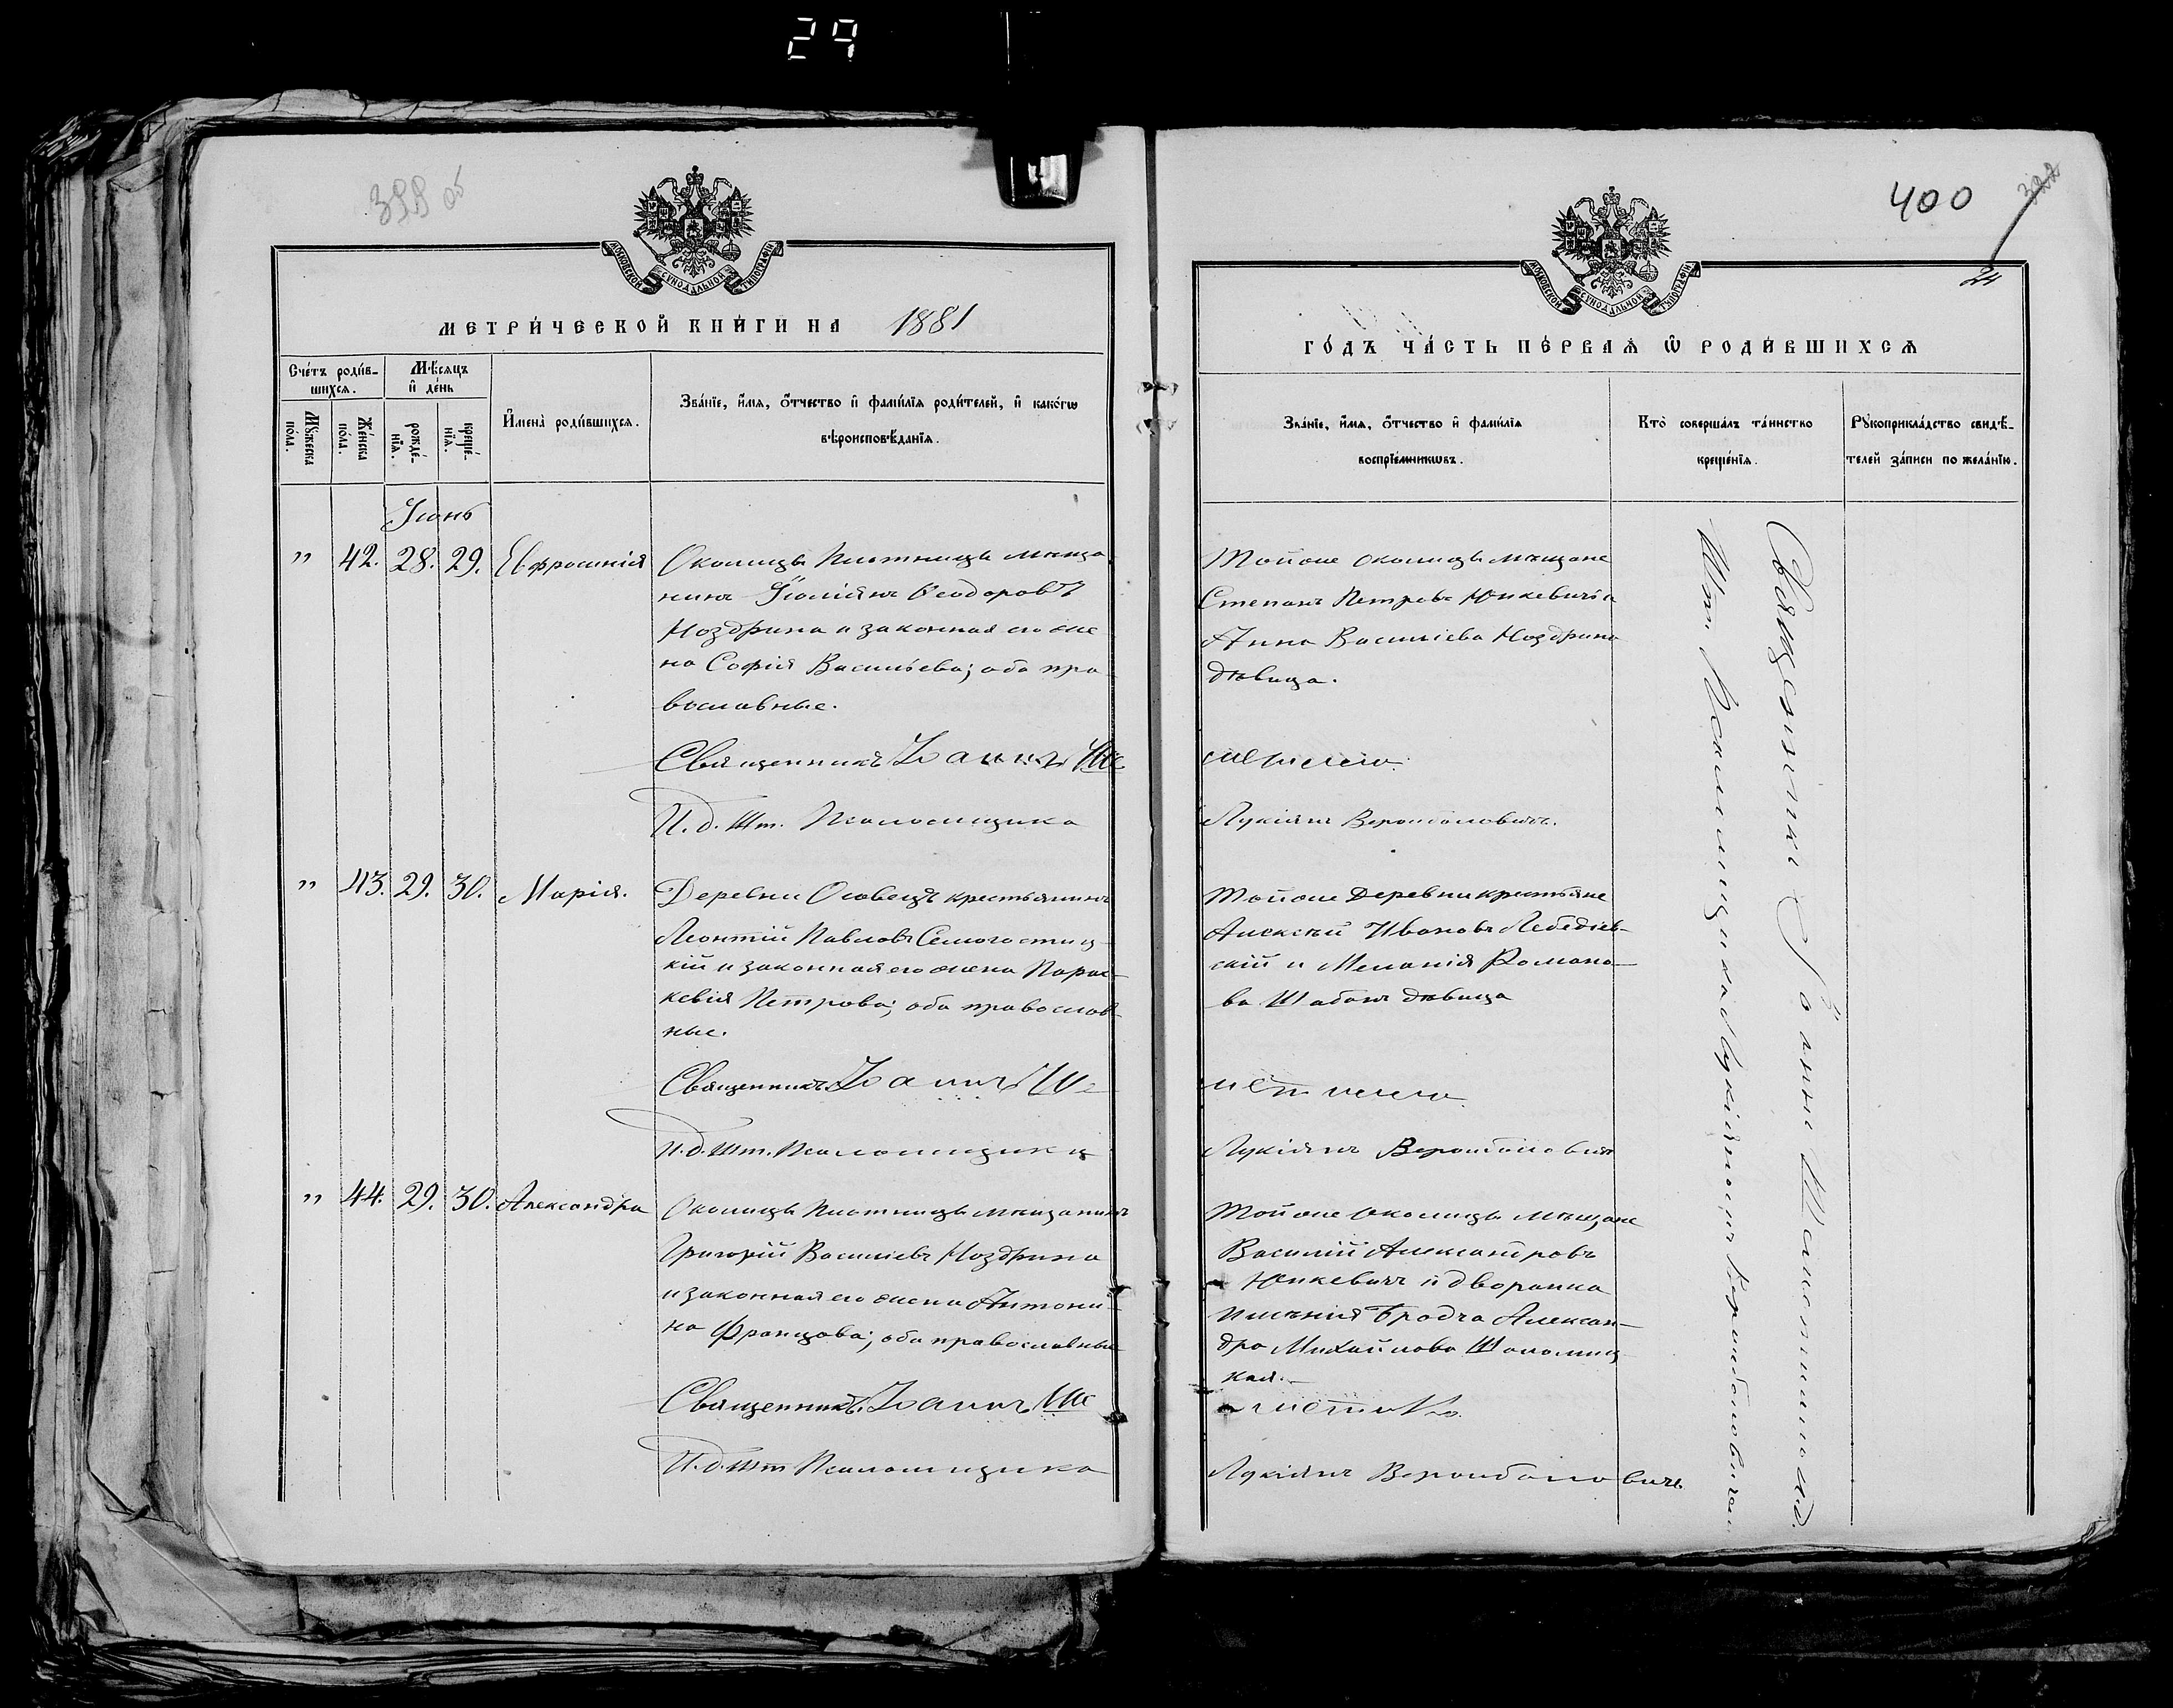 29
399 об
МОСКОВСКОЙ СУНОДАЛЬНОЙ ТИПОГРАФІИ
МЕТРИ́ЧЕСКОЙ КНИ́ГИ НА 1881
Сче́тъ роди́в-
шихся.
Мѣ́сяцъ
и҆ де́нь
Мꙋ́жеска
по́ла.
Же́нска
по́ла.
рожде́-
нїѧ.
креще́-
нїѧ.
И҆мена̀ роди́вшихся.
Зва́нїе, и҆́мя, ѻ҆́тчество и҆ фами́лїя роди́телей, и҆ како́гѡ
вѣроисповѣ́данїя.
Іюнь
" 42. 28. 29. Евфросинія
Околицы Плотницы мѣща-
нинъ Іуліянъ Ѳеодоровъ
Ноздрина и законная его же-
на Софія Васильева; оба пра-
вославные.
Священникъ Іоаннъ Ше
И. д. Шт. Псаломщика
" 43. 29. 30. Марія.
Деревни Осовецъ крестьянинъ
Леонтій Павловъ
и законная его жена Парас-
кевія Петрова; оба православ-
ные.
Священникъ Іоаннъ Ше
И. д. Шт. Псаломщика
" 44. 29. 30. Александра
Околицы Плотницы мѣщанинъ
Григорій Василіевъ Ноздрина
и законная его жена Антони-
на Францова; оба православные
Священникъ Іоаннъ Ше
И. д. Шт Псаломщика
400
322
24
МОСКОВСКОЙ СУНОДАЛЬНОЙ ТИПОГРАФІИ
ГО́ДЪ ЧА́СТЬ ПЕ́РВАЯ Ѡ҆ РОДИ́ВШИХСЯ
Зва́нїе, и҆́мя, ѻ҆́тчество и҆ фами́лїя
воспрїе́мникѡвъ.
Кто̀ соверша́лъ та́инство
креще́нїя.
Рꙋкоприкла́дство свидѣ́-
телей за́писи по жела́нїю.
Тойже околицы мѣщане
Степанъ Петровъ Юнкевичъ и
Анна Василіева Ноздрина
дѣвица.
Лукіянъ
Тойже деревни крестьяне
Алексѣй Ивановъ Лебедев-
скій и Меланія Романо-
ва Шабанъ дѣвица
Лукіянъ
Тойже околицы мѣщане
Василій Александровъ
Юнкевичъ и дворянка
имѣнія Бродча Алексан-
дра Михайлова
кая.
Лукіянъ
Священникъ Іоаннъ
Шт. Псаломщика Лукіяномъ